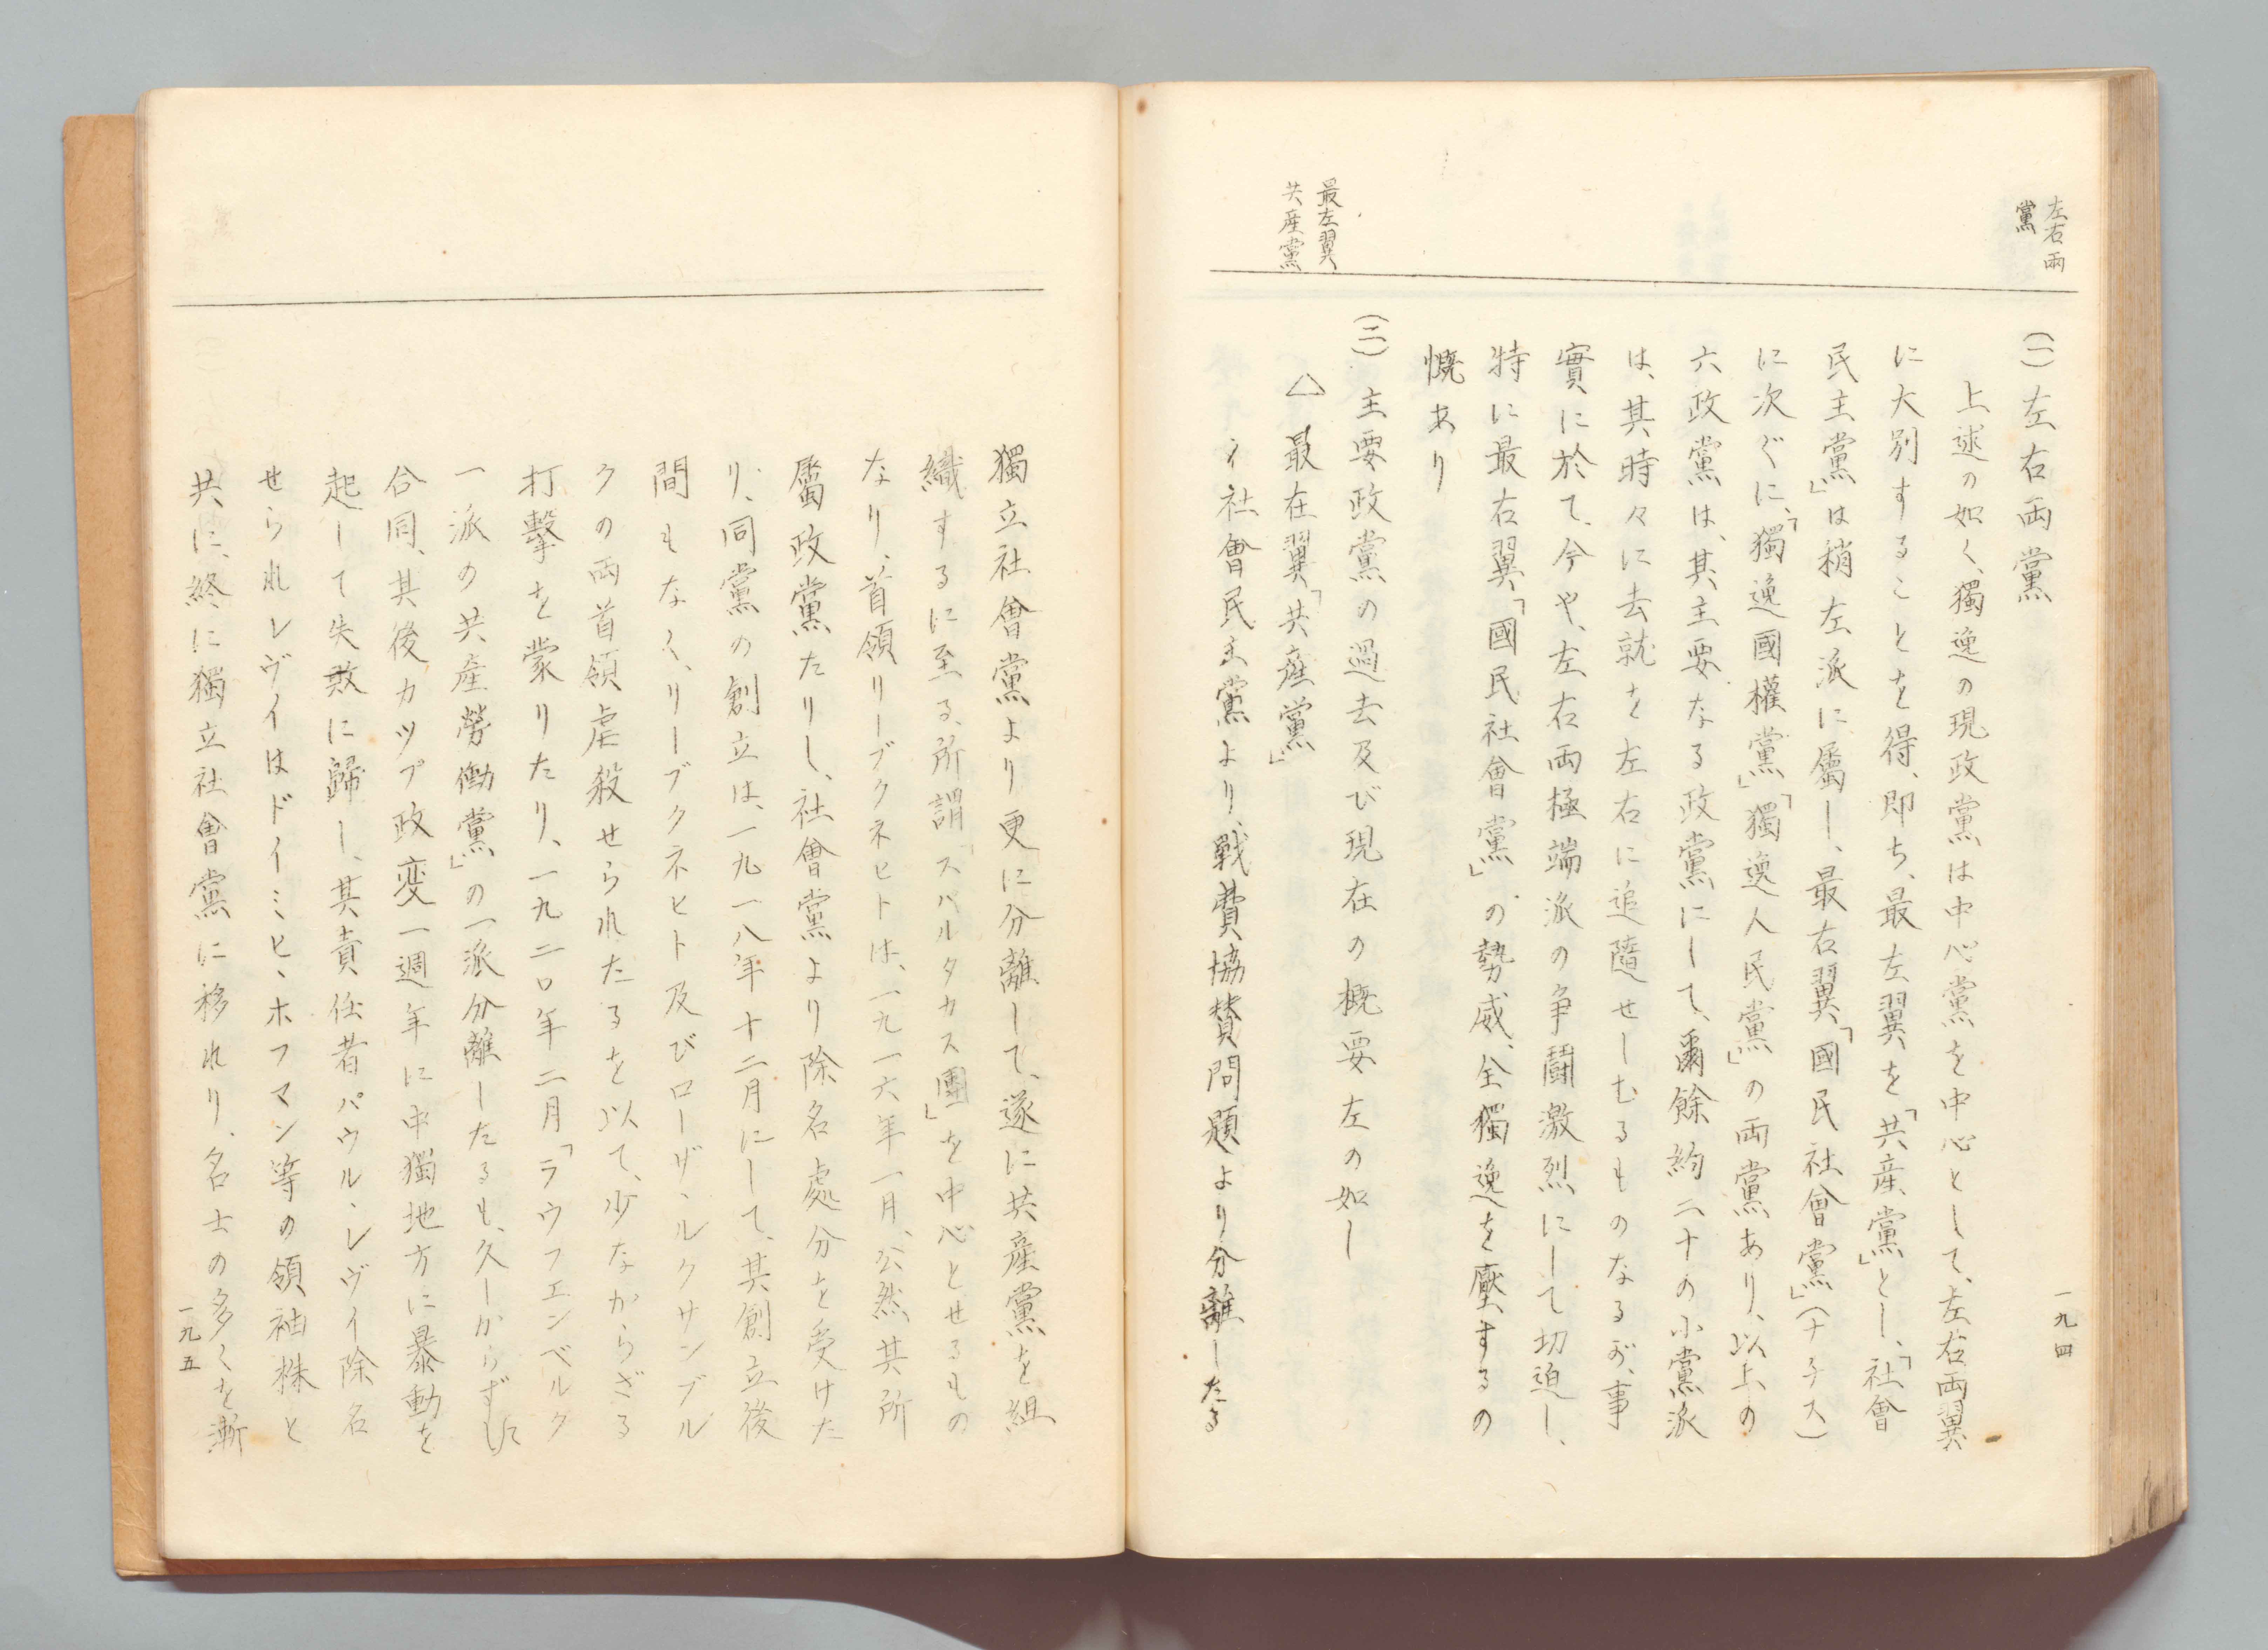 左右両
黨
一九四
(一)左右両黨
上述の如く、獨逸の現政黨は中心黨を中心として、左右両翼
に大別することを得、即ち、最左翼を「共産黨」とし、「社會
民主黨」は稍左派に屬し、最右翼「國民社會黨」(ナチス)
に次ぐに、「獨逸國權黨」「獨逸人民黨」の両黨あり、以上の
六政黨は、其主要なる政黨にして、爾餘約二十の小黨派
は、其時々に去就を左右に追隨せしむるものなるが、事
實に於て、今や、左右両極端派の争鬪激烈にして切迫し、
特に最右翼「國民社會黨」の勢威、全獨逸を壓するの
慨あり
(二)主要政黨の過去及び現在の概要左の如し
最左翼
共産黨
△最在翼「共産黨」
イ社會民主黨より、戰費協賛問題より分離したる
獨立社會黨より更に分離して、遂に共産黨を組
織するに至る、所謂「スパルタカス團」を中心とせるもの
なり、首領リーブクネヒトは、一九一六年一月、公然其所
屬政黨たりし、社會黨より除名處分を受けた
り、同黨の創立は、一九一八年十二月にして、其創立後
間もなく、リーブクネヒト及びローザ、ルクサンブル
クの両首領虐殺せられたるを以て、少なからざる
打擊を蒙りたり、一九二〇年二月「ラウフエンベルク
一派の共産勞働黨」の一派分離したるも、久しからずして
合同、其後カツプ政変一週年に中獨地方に暴動を
起して失敗に歸し、其責任者パウル、レヴイ除名
せられレヴイはドイミヒ、ホフマン等の領袖株と
共に、終に獨立社會黨に移れり、名士の多くを漸
一九五